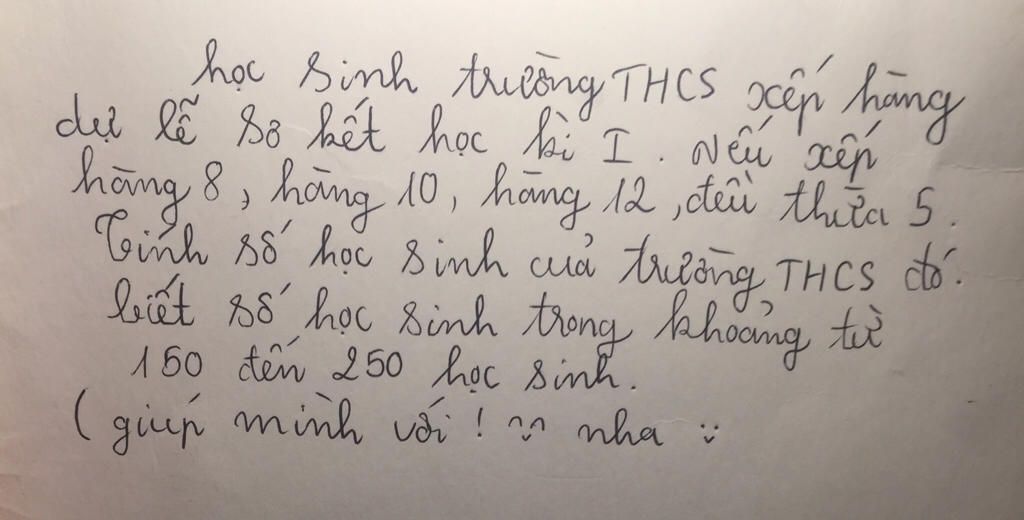 học sinh trường THCS xếp hàng
dự lễ sơ kết học kì I. Nếu xếp
hàng 8, hàng 10, hàng 12, đều thừa 5.
Tính số học sinh cuả trường THCS đó.
biết số học sinh trong khoảng từ
150 đến 250 học sinh.
(giúp mình với! nha